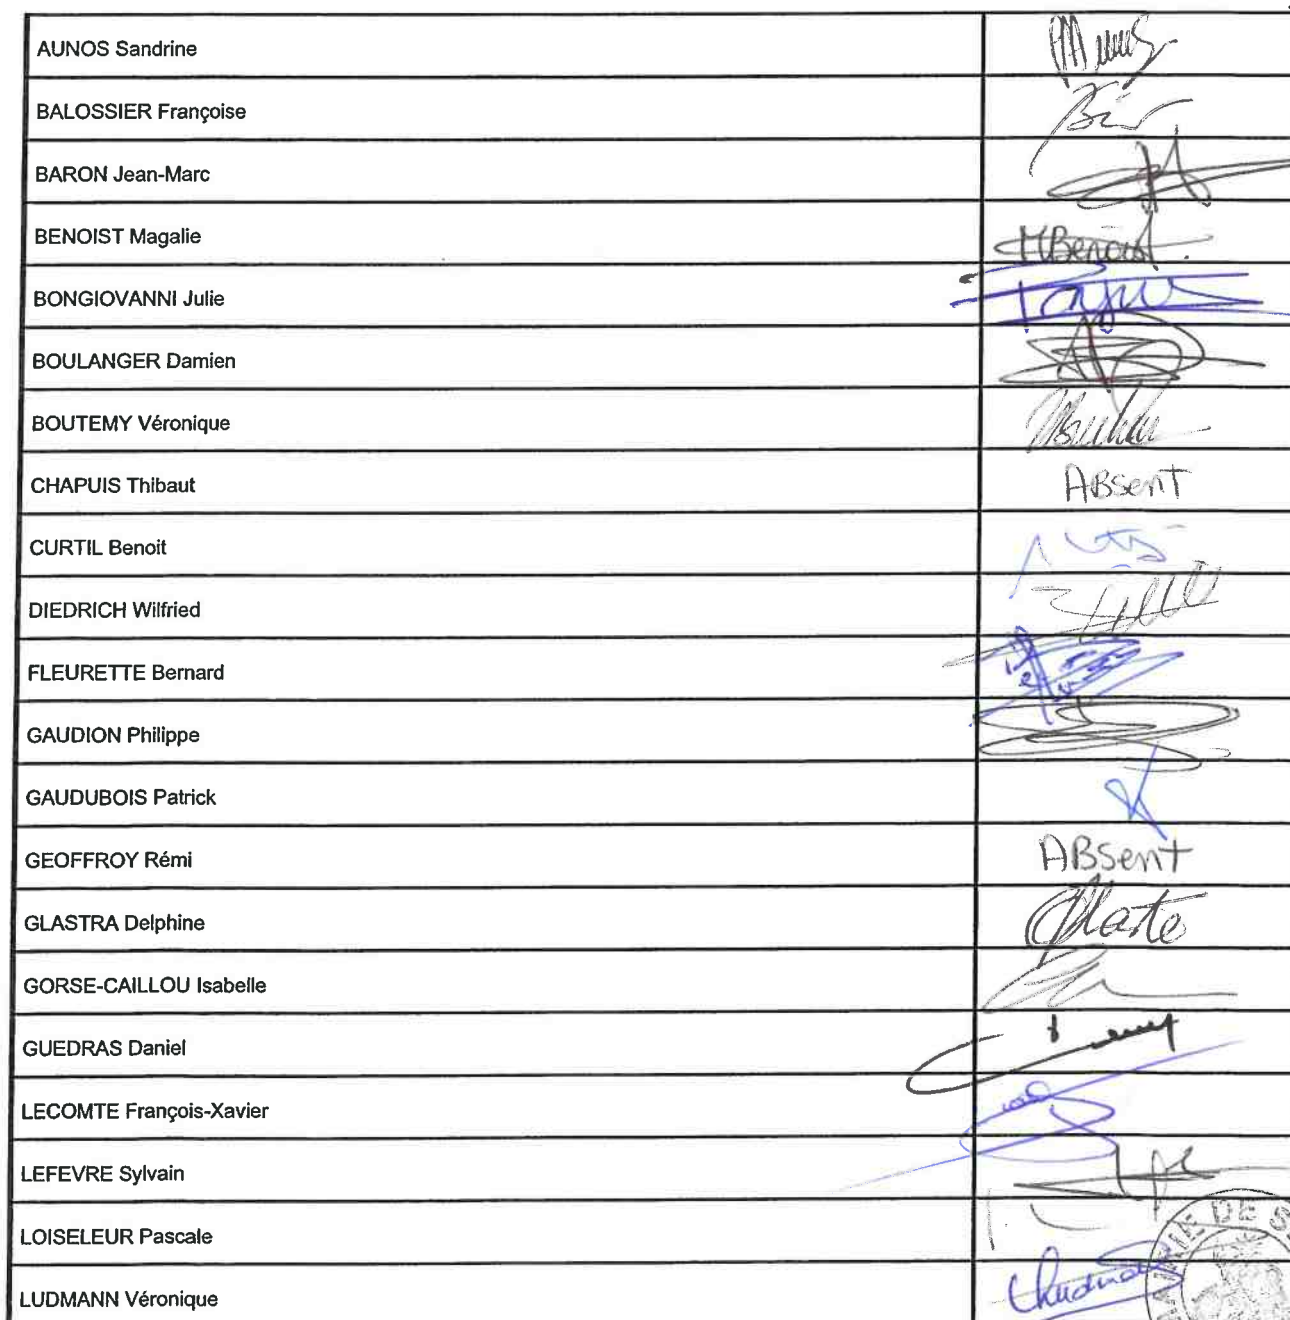 AUNOS Sandrine
BALOSSIER Françoise
BARON Jean-Marc
BENOIST Magalie MBenoist
BONGIOVANNI Julie
BOULANGER Damien
BOUTEMY Véronique
CHAPUIS Thibaut ABsenT
CURTIL Benoit
DIEDRICH Wilfried
FLEURETTE Bernard
GAUDION Philippe
GAUDUBOIS Patrick
GEOFFROY Rémi ABsent
GLASTRA Delphine
GORSE-CAILLOU Isabelle
GUEDRAS Daniel
LECOMTE François-Xavier
LEFEVRE Sylvain
LOISELEUR Pascale
MAIRIE DE S
LUDMANN Véronique